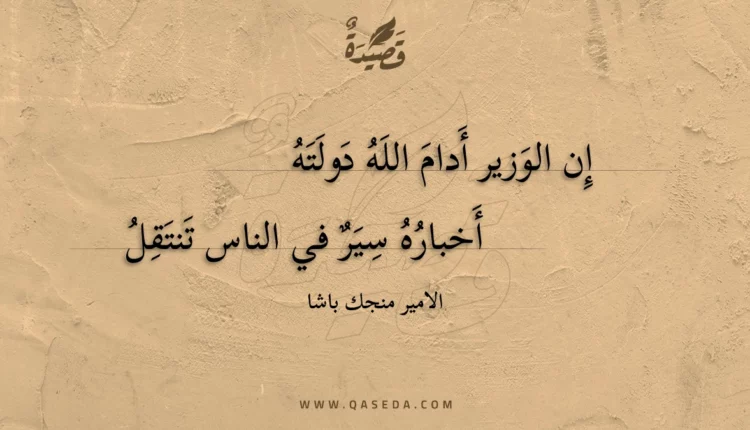 قَصِيْدَةٌ
إِن الوَزير أَدامَ اللَهُ دَولَتَهُ
أَخبارُهُ سِيَرٌ في الناس تَنتَقِلُ
الامير منجك باشا
WWW.QASEDA.COM